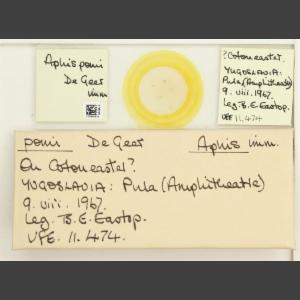 Aphis pomi
De Geer
imm.
? Cotoneaster.
YUGOSLAVIA:
Pula (Amphitheatre)
9. viii. 1967.
Leg. B.E. Eastop.
VFE 11.474
pomi De Geer Aphis imm.
On Cotoneaster?
YUGOSLAVIA: Pula (Amphitheatre)
9. viii. 1967.
Leg. B.E. Eastop.
VFE. 11.474.